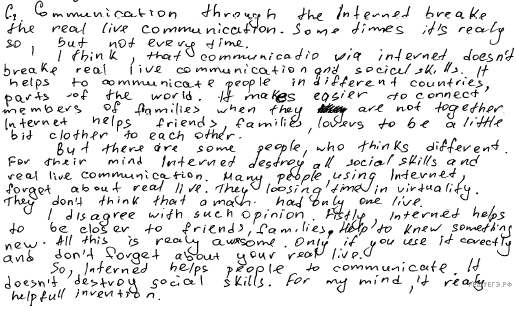 C2 Communication through the Internet breake
the real live communication. Some times it's realy
so, but not every time.
I think, that communicatio via internet doesn't
breake real live communication and social skills. It
helps to communicate people in different countries,
parts of the world. It makes easier to connect
members of families when they are not together.
Internet helps friends, families, lovers to be a little
bit clother to each other.
But there are some people, who thinks different.
For their mind Internet destroy all social skills and
real live communication. Many people using Internet,
forget about real live. They loosing time in virtuality.
They don't think that a man had only one live.
I disagree with such opinion. Fistly, Internet helps
to be closer to friends, families. Help to knew something
new. All this is realy awsome. Only if you use it corectly
and don't forget about your real live.
So, Internet helps people to communicate. It
doesn't destroy social skills. For my mind, it realy
helpfull invention.